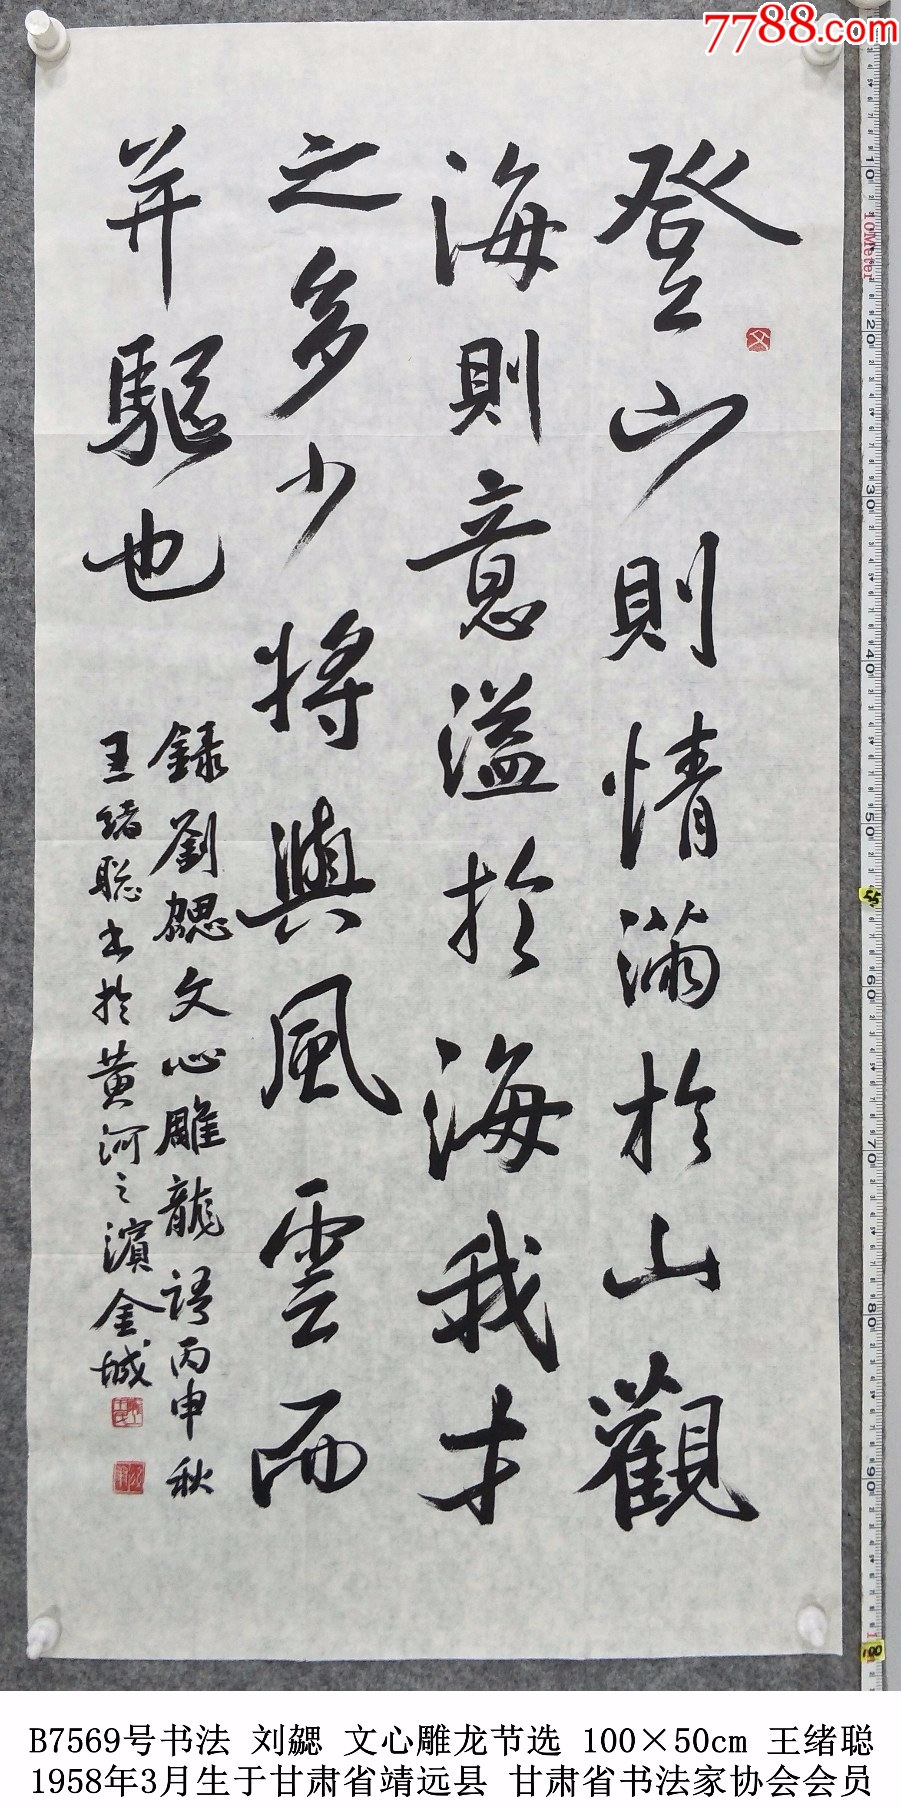 7788.com
登山則情滿於山觀
海則意溢於海我才
之多少將與風雲而
并驅也
録劉勰文心雕龍語丙申秋
王緒聪书於黄河之濱金城
B7569号书法 刘勰 文心雕龙节选 100×50cm 王绪聪
1958年3月生于甘肃省靖远县 甘肃省书法家协会会员